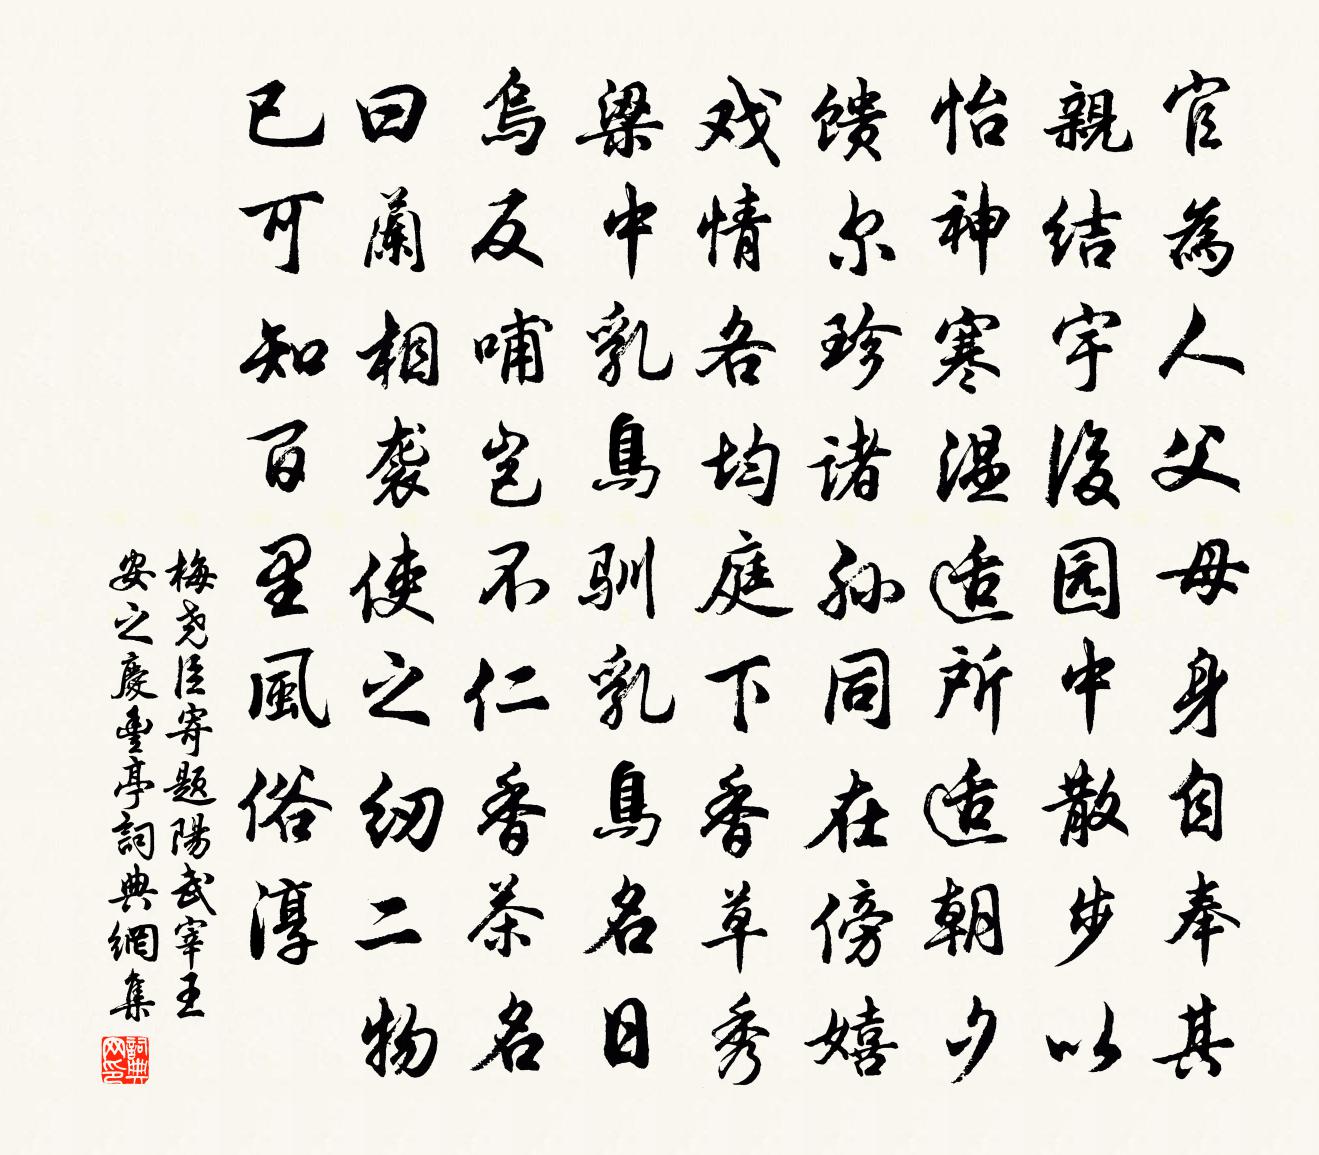 官為人父母身自奉其
親結宇後园中散步以
怡神寒温适所适朝夕
馈尔珍诸孙同在傍嬉
戏情各均庭下香草秀
梁中乳鳥馴乳鳥名日
烏反哺岂不仁香茶名
曰蘭相袭使之纫二物
已可知百里風俗淳
梅尧臣寄题陽武宰王
安之慶豐亭詞典網集
詞典
网印